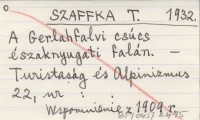 SZAFFKA T. 1932.
A Gerlahfalvi csúcs
északnyugati falán. —
Turistaság és Alpinizmus
22, nr : :
Wspomnienie z 1909 r.